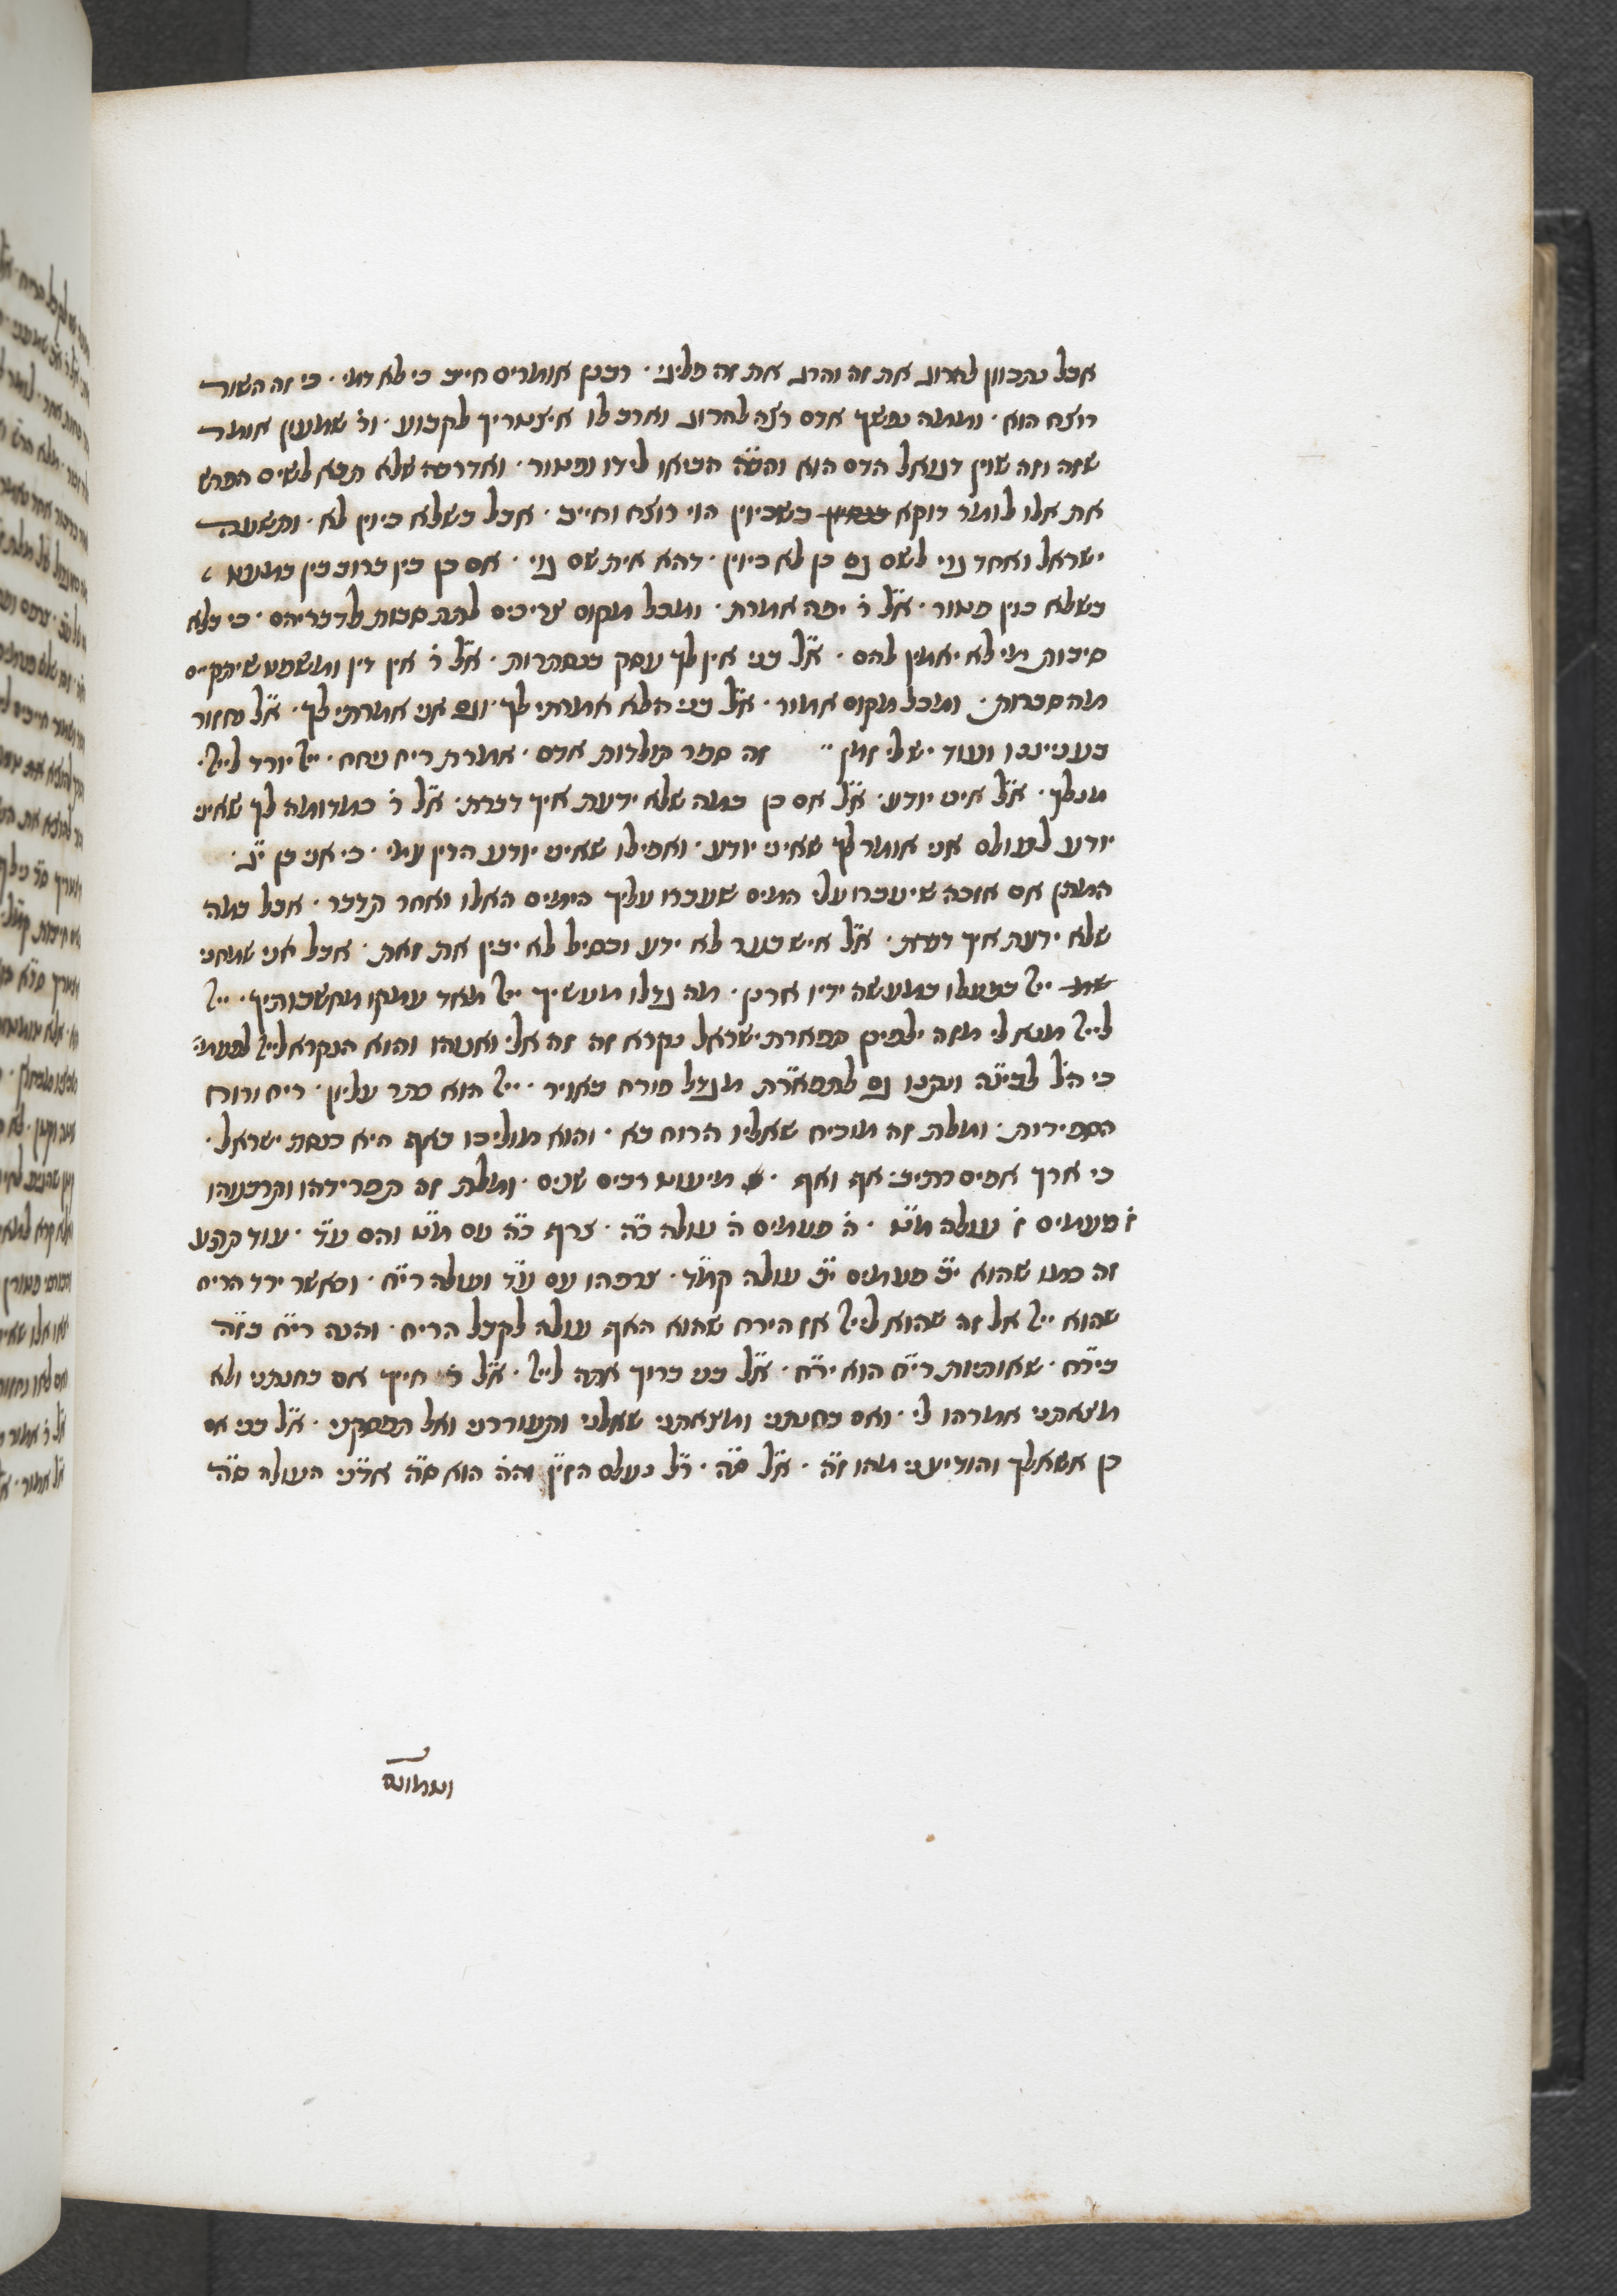 אבל נתכוון להרוג את זה והרג את זה פליגי · רבנן אומרים חייב כי לא דמי · כי זה השור
רוצח הוא · וממה נפשך אדם רצה להרוג וארב לו איצטריך לקבוע · ור׳ שמעון אומר
שזה וזה שוין דגואל הדם הוא והש״ת הביאו לידו ופטור · ואדרבה שלא תבא לשים הפרש
את אלו לומר דוקא כשכיוין הוי רוצח וחייב · אבל כשלא כיוין לא · ותשעה
ישראל ואחד גוי לשם גם כן לא כיוין · דהא אית שם גוי · אם כן בין ברוב בין במועט
כשלא כוין פטור · א״ל ר׳ יפה אמרת · ומכל מקום צריכים לתת סבות לדבריהם · כי בלא
סיבות מי לא יאמין להם · א״ל בני אין לך עסק בנסתרות · א״ל ר׳ אין דין ומשפט שיתקיים
מה סברות · ומכל מקום אמור · א״ל בני הלא אמרתי לך · וגם אני אמרתי לך · א״ל נחזור
בעניננו ועוד יש לי זמן ״ זה ספר תולדות אדם · אמרת ריח ניחח · ייי יורד לייי ·
מנלך · א״ל איני יודע · א״ל אם כן כמה שלא ידעת איך דברת · א״ל ר׳ כמדומה לך שאיני
יודע לעולם אני אומר לך שאיני יודע · ואפילו שאיני יודע הדין עמי · כי אני בן י״ג ·
המתן אם אזכה שיעברו עלי הימים שעברו עליך הימים האלו ואחר קדבר · אבל כמה
שלא ידעת איך דברת · א״ל איש בער לא ידע וכסיל לא יבין את זאת · אבל אני שמחני
ייי בפעלו במעשה ידיו ארנן · מה גדלו מעשיך ייי מאד עמקו מחשבותיך · ייי
לייי מנא לי מזה ילפינן תפארת ישראל נקרא זה זה אלי ואנוהו והוא הנקרא לייי לפעמי׳
כי ה״ל לבינ״ה ונקנו גם לתפאר״ת מגדל פורח באויר · ייי הוא כתר עליון · ריח ורוח
הספירות · ומלת זה מוכיח שאליו הרוח בא · והוא מוליכו באף היא כנסת ישראל ·
כי ארך אפים כתיב · אף ואף · מיעוט רבים שנים · ומלת זה תפרידהו וקרבנהו
ז׳ פעמים ז׳ עולה מ״ט · ה׳ פעמים ה׳ עולה כ״ה · צרף כ״ה עם מ״ט והם ע״ד · עוד קח
זה כמו שהוא י״ב פעמים י״ב עולה קמ״ד · צרפהו עם ע״ד ועולה רי״ח · וכאשר ירד הריח
שהוא ייי אל זה שהוא לייי אז הירח שהוא האף עולה לקבל הריח · והנה רי״ח בז״ה
בי״רח · שאותיות רי״ח הוא יר״ח · א״ל בני ברוך אתה לייי · א״ל ר׳ חייך אם בחנתני ולא
מצאתני אמרהו לי · ואם בחנתני ומצאתני שאלני ותעוררני ואל תפסקני · א״ל בני אם
כן אשאלך והודיעני מהו ז״ה · א״ל ס״ה · ר״ל נעלם הזי״ן וה׳ הוא ס״ה אדנ״י העולה ס״ה